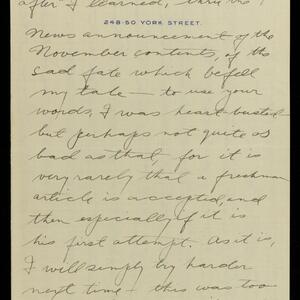 after I learned, via the
248-50 YORK STREET.
News announcement of the
November contents, of the
sad fate which befell
my tale – to use your
words, I was heart-busted –
but perhaps not quite as
bad as that, for it is
very rarely that a freshman
article is accepted, and
then especially if it is
his first attempt. As it is,
I will simply try harder
next time – this was too